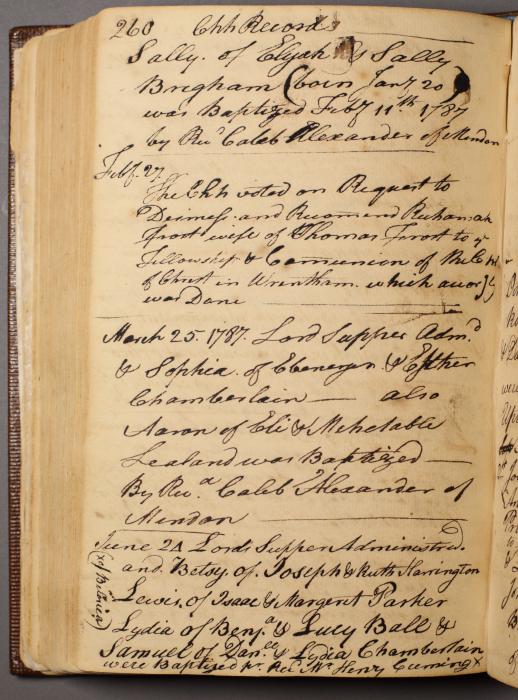 260 Chh Records
Sally. of Elijah & Sally
Brigham (born Jany 20)
was Baptized Feby 11th 1787
by Revd Caleb Alexander of Mendon
Feby. 27.
The Chh voted on Request to
Dismess. and Recomend Rechamiah
frost wife of Thomas Frost to ye
Fellowship & Comunion of the Chh
of Christ in Wrentham. which accordly
was Dane
March 25. 1787. Lord Supper Admd
& Sophia. of Ebenezer. & Esther
Chamberlain — also
Aaron of Eli & Mehetable
Lealand was Baptized —
By Revd Caleb Alexander of
Mendon
June 24 Lords Supper Administred.
and. Betsy. of. Joseph & Ruth Harrington
Lewis. of Isaac & Margeret Parker
Lydia of Benja & Lucy Ball &
Samuel of Danll & Lydia Chamberlain
were Baptized pr. Revd Mr Henry Cuming x
x of Billerica